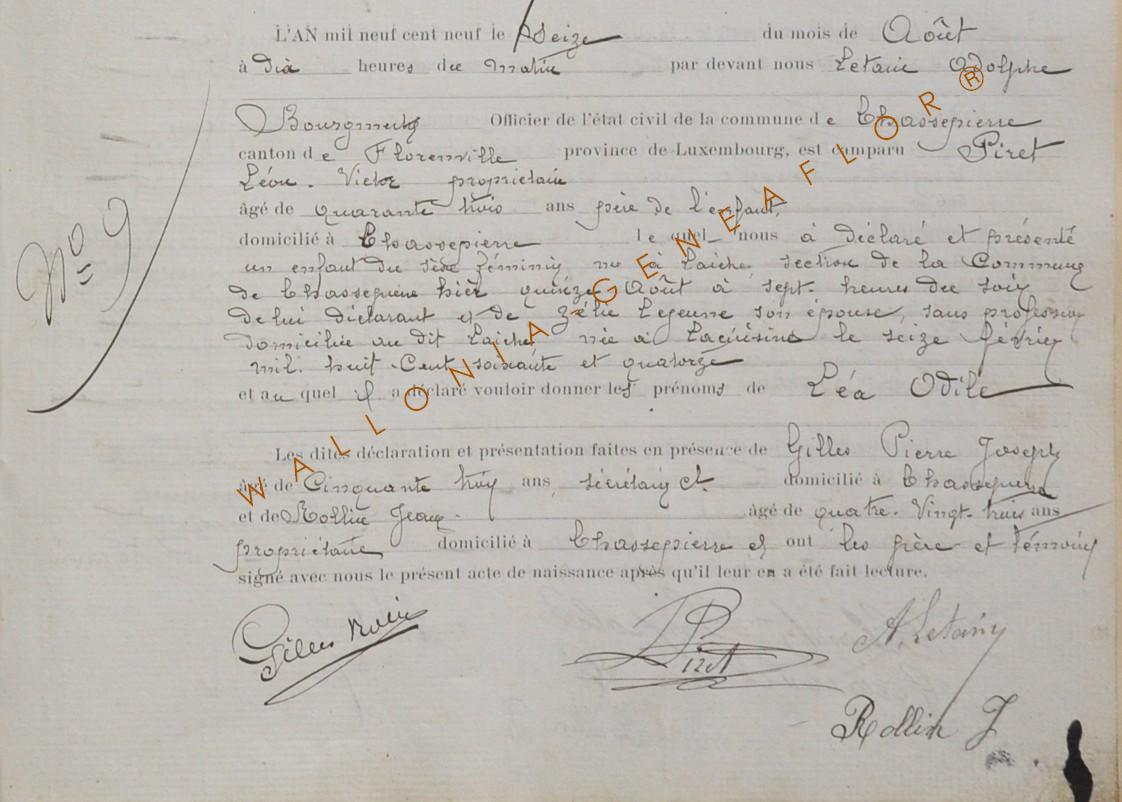 L'AN mil neuf cent neuf le seize du mois de Août
à dix heures du matin par devant nous Letaie Adolphe
Bourgmestre Officier de l'état civil de la commune de Chassepierre
canton de Florenville province de Luxembourg, est comparu Piret
Léon Victor propriétaire
âgé de quarante trois ans père de l'enfant,
domicilié à Chassepierre lequel nous a déclaré et présenté
un enfant du sexe féminin, né à Laiche section de la Commune
de Chassepierre hier quinze Août à sept heures du soir
de lui déclarant et de Zélie Lejeune son épouse, sans profession
domiciliée au dit Laiche née à le seize février
mil huit Cent soixante et quatorze
et auquel il a déclaré vouloir donner les prénoms de Léa Odile
Les dites déclaration et présentation faites en présence de Gilles Pierre Joseph
âgé de Cinquante ans, secrétaire cl domicilié à Chassepierre
et de Rollin Jean âgé de quatre-Vingt-trois ans
propriétaire domicilié à Chassepierre et ont les père et témoins
signé avec nous le présent acte de naissance après qu'il leur en a été fait lecture.
N° 9
Gilles
Piret
A. Letaie
Rollin J
WALLONIA GENEAFLOR ®